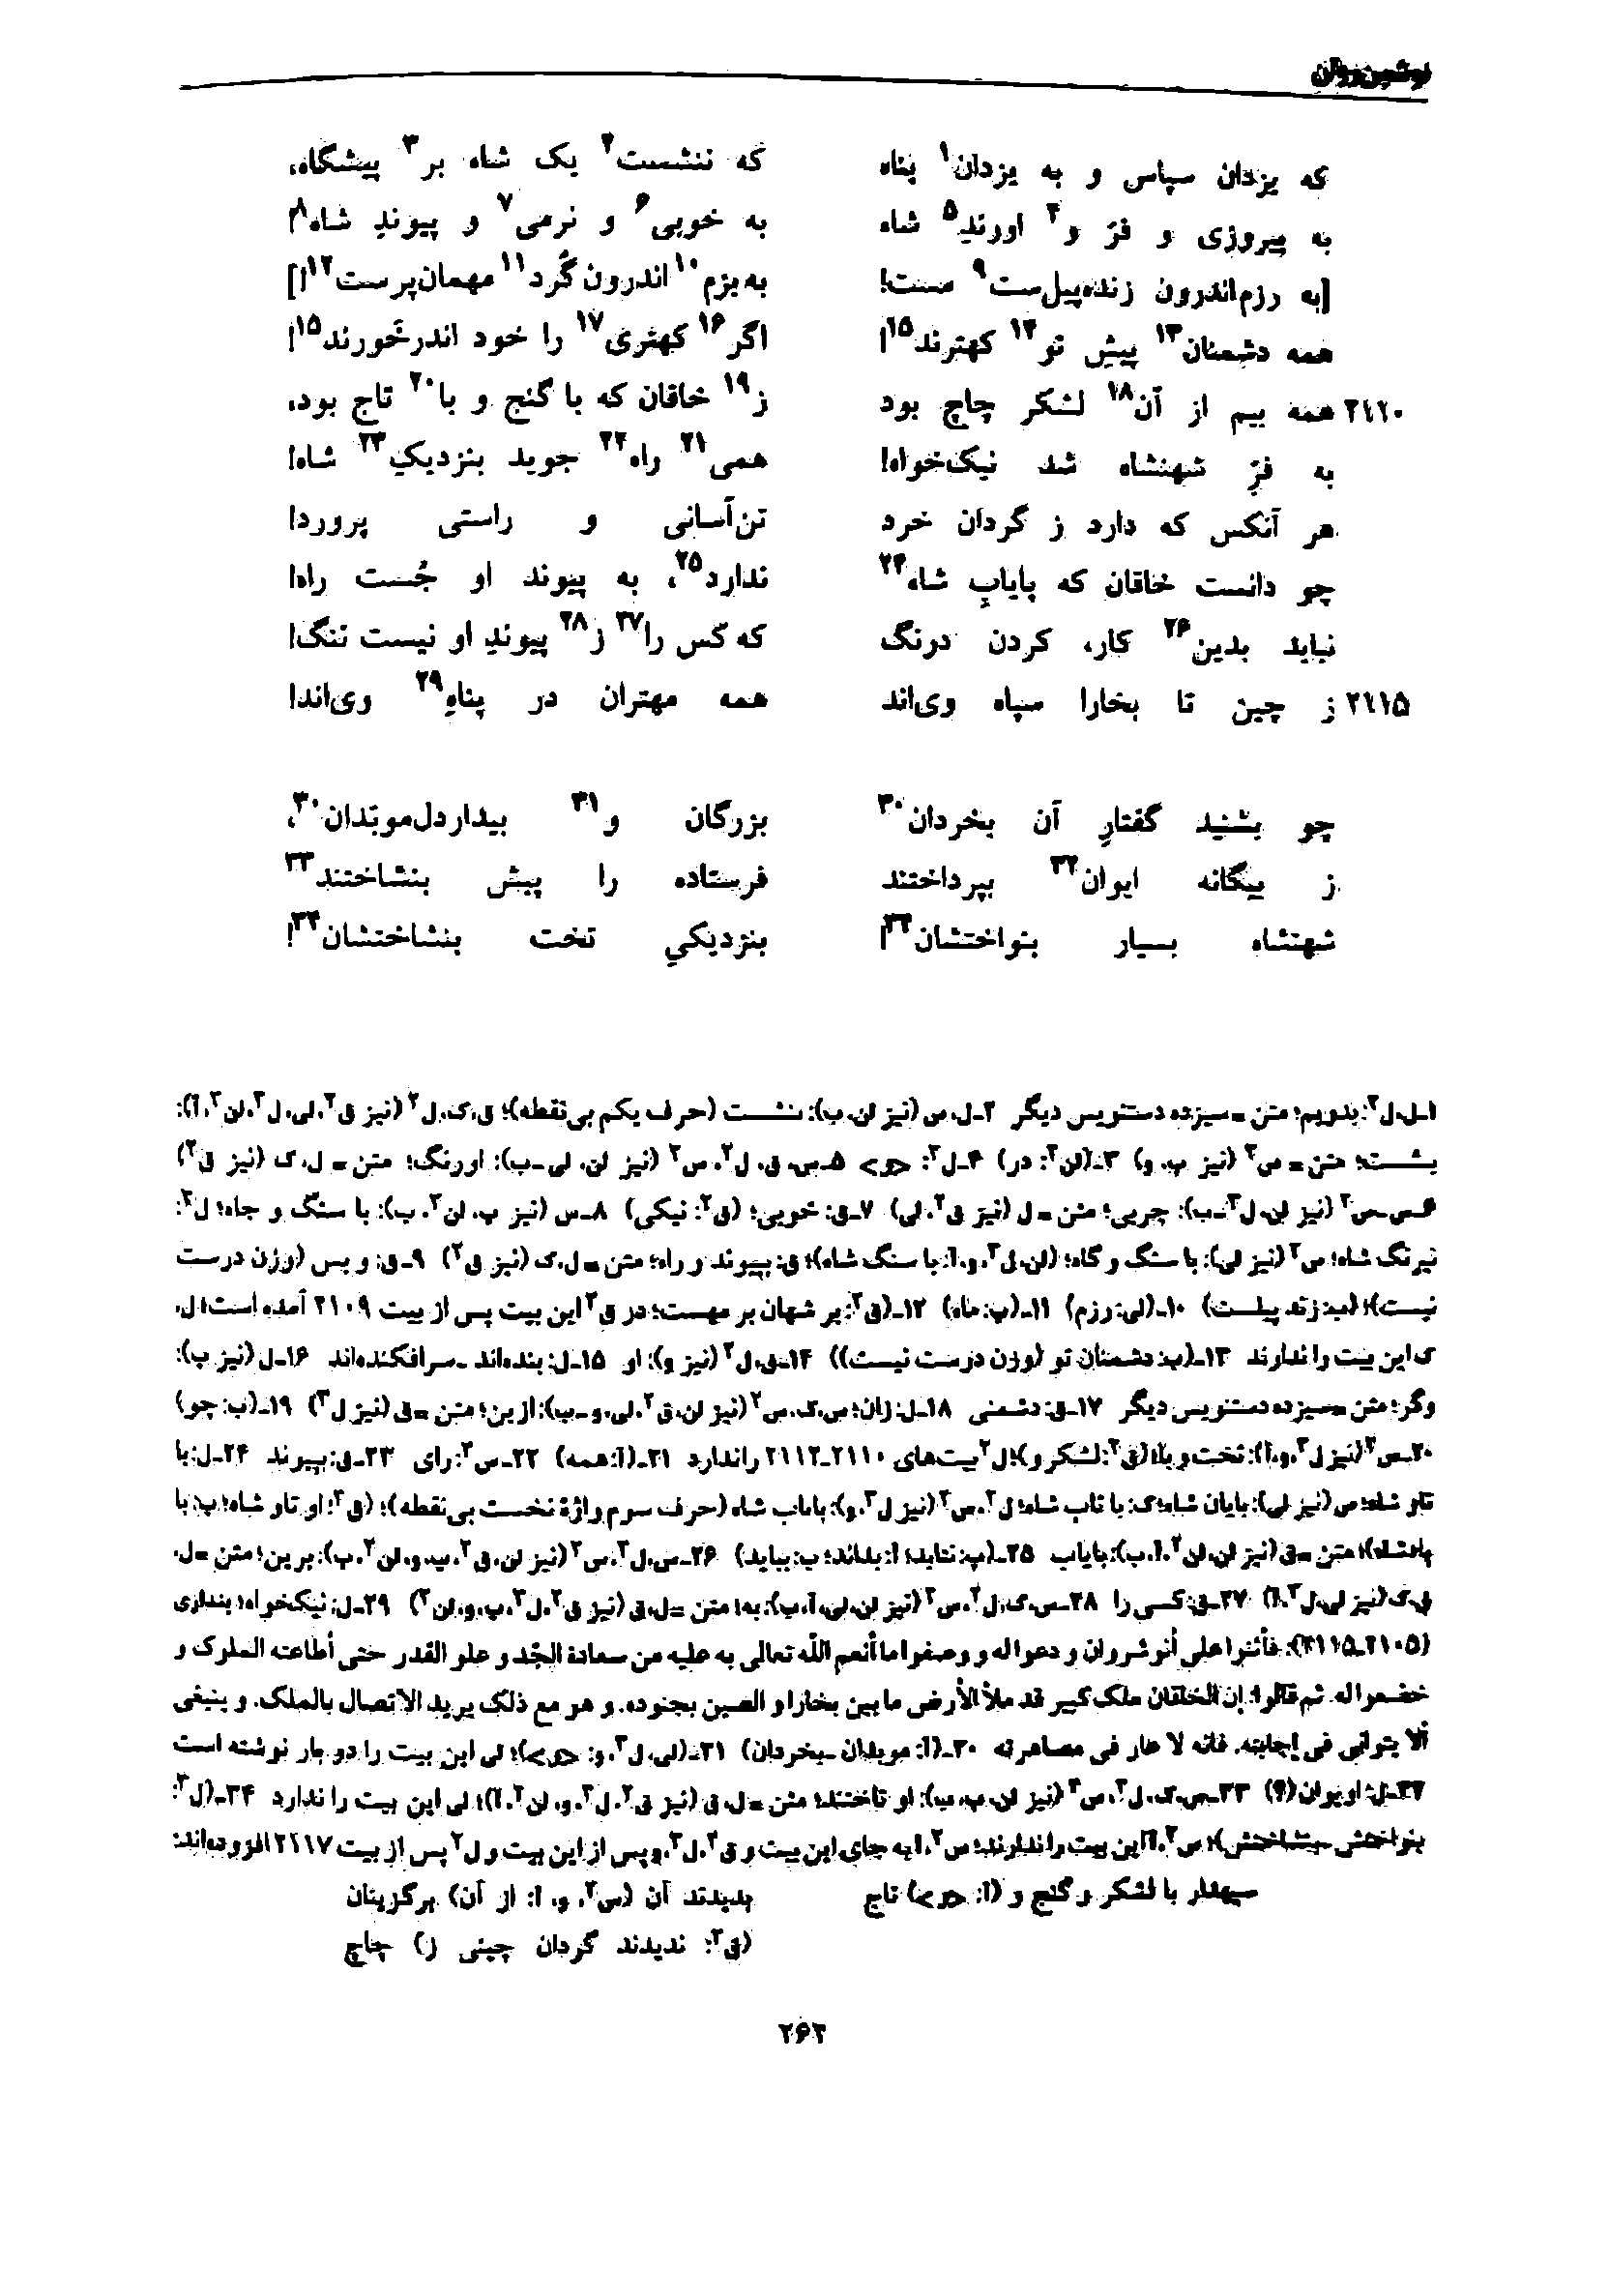 نوشین‌روان
که یزدان سپاس و به یزدان۱ پناه که ننشست۲ یک شاه بر۳ پیشگاه،
به پیروزی و فرّ و۴ اورندِ۵ شاه به خوبی۶ و نرمی۷ و پیوندِ شاه۸!
[به رزم‌اندرون زنده‌پیل‌ست۹ مست! به‌بزم۱۰ اندرون گُرد۱۱ مهمان‌پرست۱۲!]
همه دشمنان۱۳ پیشِ تو۱۴ کهترند۱۵! اگر۱۶ کهتری۱۷ را خود اندرخَورند۱۵!
۲۱۱۰ همه بیم از آن۱۸ لشکر چاچ بود ز۱۹ خاقان که با گنج و با۲۰ تاج بود،
به فرّ شهنشاه شد نیک‌خواه! همی۲۱ راه۲۲ جوید بنزدیکِ۲۳ شاه!
هر آنکس که دارد ز گردان خرد تن‌آسانی و راستی پرورد!
چو دانست خاقان که پایابِ شاه۲۴ ندارد۲۵، به پیوند او جُست راه!
نباید بدین۲۶ کار، کردن درنگ که کس را۲۷ ز۲۸ پیوندِ او نیست ننگ!
۲۱۱۵ ز چین تا بخارا سپاه وی‌اند همه مهتران در پناهِ۲۹ وی‌اند!
چو بشنید گفتارِ آن بخردان۳۰ بزرگان و۳۱ بیداردل‌موبَدان۳۰،
ز بیگانه ایوان۳۲ بپرداختند فرستاده را پیش بنشاختند۳۳
شهنشاه بسیار بنواختشان۳۴! بنزدیکیِ تخت بنشاختشان۳۴!
۱ـ ل، ل۲: بدویم؛ متن = سیزده دستنویس دیگر ۲ـ ل، س (نیز لن، ب): ننشست (حرف یکم بی‌نقطه)؛ ق، ک، ل۲ (نیز ق۲، لی، ل۳، لن۲، آ):
بنشست؛ متن = س۲ (نیز پ، و) ۳ـ (لن۲: در) ۴ـ ل۲: <و> ۵ـ س، ق، ل۲، س۲ (نیز لن، لی ـ ب): اورنگ؛ متن = ل، ک (نیز ق۲)
۶ـ س ـ س۲ (نیز لن، ل۳ ـ ب): چربی؛ متن = ل (نیز ق۲، لی) ۷ـ ق: خوبی؛ (ق۲: نیکی) ۸ـ س (نیز پ، لن۲، ب): با سنگ و جاه؛ ل۲:
نیرنگ شاه؛ س۲ (نیز لی): با سنگ و گاه؛ (لن، ل۳، و، آ: با سنگ شاه)؛ ق: پیوند و راه؛ متن = ل، ک (نیز ق۲) ۹ـ ق: و پس (وزن درست
نیست)؛ (پ: زند پیلست) ۱۰ـ (لی: رزم) ۱۱ـ (پ: ماه) ۱۲ـ (ق۲: بر شهان بر مهست؛ در ق۲ این بیت پس از بیت ۲۱۰۹ آمده است؛ ل،
ک این بیت را ندارند ۱۳ـ (پ: دشمنان تو (وزن درست نیست)) ۱۴ـ ق، ل۲ (نیز و): او ۱۵ـ ل: بنده‌اند ـ سرافکنده‌اند ۱۶ـ ل (نیز پ):
وگر؛ متن = سیزده دستنویس دیگر ۱۷ـ ق: دشمنی ۱۸ـ ل: زان؛ س، ک، س۲ (نیز لن، ق۲، لی، و ـ ب): ازین؛ متن = ق (نیز ل۳) ۱۹ـ (ب: چو)
۲۰ـ س۲ (نیز ل۳، و، آ): تخت و با؛ (ق۲: لشکر و)؛ ل۲ بیت‌های ۲۱۱۰ـ۲۱۱۲ را ندارد ۲۱ـ (آ: همه) ۲۲ـ س۲: رای ۲۳ـ ق: پیوند ۲۴ـ ل: با
تاو شاه؛ س (نیز لی): پایان شاه؛ ک: با تاب شاه؛ ل۲، س۲ (نیز ل۳، و): پاباب شاه (حرف سوم واژهٔ نخست بی‌نقطه)؛ (ق۲: او تاو شاه؛ پ: با
پادشاه)؛ متن = ق (نیز لن، لن۲، آ، ب): پایاب ۲۵ـ (پ: نتابد؛ آ: بداند؛ ب: بیابد) ۲۶ـ س، ل۲، س۲ (نیز لن، ق۲، پ، و، لن۲، ب): برین؛ متن = ل،
ق، ک (نیز لی، ل۳، آ) ۲۷ـ ق: کسی را ۲۸ـ س، ک، ل۲، س۲ (نیز لن، لی، آ، ب): به؛ متن = ل، ق (نیز ق۲، ل۳، پ، و، لن۲) ۲۹ـ ل: نیکخواه؛ بنداری
(۲۱۰۵ـ۲۱۱۵): فأثنوا علی أنوشروان و دعوا له و وصفوا ما أنعم اللّه تعالی به علیه من سعادة الجَد و علو القدر حتی أطاعته الملوک و
خضعوا له. ثم قالوا: إن الخاقان ملک کبیر قد ملأ الأرض ما بین بخارا و الصین بجنوده. و هو مع ذلک یرید الاتصال بالملک. و ینبغی
ألا یتوانی فی إجابته. فانه لا عار فی مصاهرته ۳۰ـ (آ: موبدان ـ بخردان) ۳۱ـ (لی، ل۳، و: <و>)؛ لی این بیت را دو بار نوشته است
۳۲ـ ل: او یوان(؟) ۳۳ـ س، ک، ل۲، س۲ (نیز لن، پ، ب): او تاختند؛ متن = ل، ق (نیز ق۲، ل۳، و، لن۲، آ)؛ لی این بیت را ندارد ۳۴ـ (ل۳:
بنواختش ـ بنشاختش)؛ س۲، آ این بیت را ندارند؛ س۲، آ به جای این بیت و ق۲، ل۳، و پس از این بیت و ل۲ پس از بیت ۲۱۱۷ افزوده‌اند:
سپهدار با لشکر و گنج و (آ: <و>) تاج پدیدند آن (س۲، و، آ: از آن) برگزینان
(ق۲: ندیدند گردان چینی ز) چاچ
۲۶۳